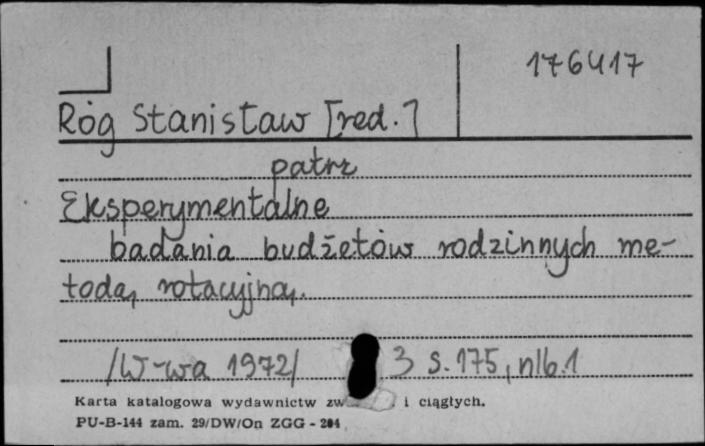 176417
Róg Stanisław [red.]
patrz
Eksperymentalne
badania budżetów rodzinnych me-
todą rotacyjną.
/W-wa 1972/ 3 s. 175, nlb. 1
Karta katalogowa wydawnictw zw i ciągłych.
PU-B-144 zam. 29/DW/On ZGG - 204